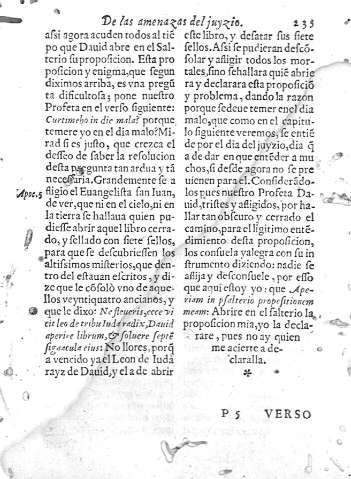 De las amenazas del juyzio. 235
assi agora acuden todos al tiẽ
po que Dauid abre en el Sal-
terio su proposicion. Esta pro
posicion y enigma, que segun
diximos arriba, es vna pregũ
ta dificultosa; pone nuestro
Profeta en el verso siguiente:
Cur timebo in die mala? porque
temere yo en el dia malo? Mi-
rad si es justo, que crezca el
desseo de saber la resolucion
desta pregunta tan ardua y tã
necessaria. Grandemente se a
Apoc. 5
fligio el Euangelista san Iuan,
de ver, que ni en el cielo, ni en
la tierra se hallaua quien pu-
diesse abrir aquel libro cerra-
do, y sellado con siete sellos,
para que se descubriessen los
altissimos misterios, que den-
tro del estauan escritos, y di-
ze que le cõsolò vno de aque-
llos veyntiquatro ancianos, y
que le dixo: Ne fleueris, ecce vi
cit leo de tribu Iuda radix, Dauid
aperire librum, & soluere septẽ
signacula eius: No llores, porq̃
a vencido ya el Leon de Iuda
rayz de Dauid, y el a de abrir
este libro, y desatar sus siete
sellos. Assi se pudieran descõ-
solar y afligir todos los mor-
tales, sino se hallara quiẽ abrie
ra y declarara esta proposiciõ
y problema, dando la razon
porque se deue temer en el dia
malo, que como en el capitu-
lo siguiente veremos, se entiẽ
de por el dia del juyzio, dia q̃
a de dar en que entẽder a mu-
chos, si desde agora no se pre
uienen para el. Considerãdo-
los pues nuestro Profeta Da-
uid, tristes y afligidos, por ha-
llar tan obscuro y cerrado el
camino, para el ligitimo entẽ-
dimiento desta proposicion,
los consuela y alegra con su in-
strumento diziendo: nadie se
aflija y desconsuele, por esso
que aqui estoy yo: que Ape-
riam in psalterio propositionem
meam: Abrire en el salterio la
proposicion mia, yo la decla-
rare, pues no ay quien
me acierte a de-
clararla.
*
P 5 VERSO